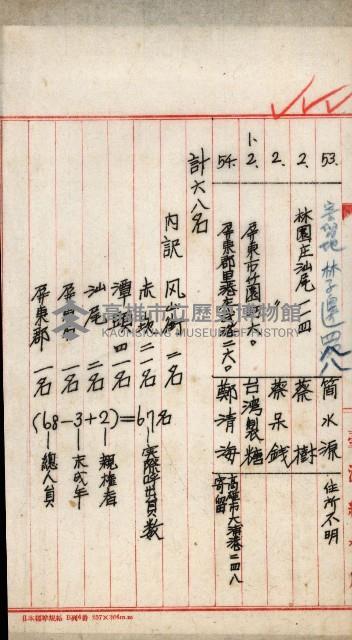 53. 寄留地 林子邊四八八 簡水源 住所不明
2. 林園庄汕尾一四 蔡樹
2. 〃 蔡呆錢
1、2. 屏東市竹園 六〇 台湾製糖
54. 屏東郡里港 二六〇 鄭清海 高雄市大湳港二四八 寄留
計六八名
内訳 风山街 二名
赤崁 二一名
潭頭 四一名
汕尾 二名
屏東市 一名
屏東郡 一名
(68-3+2)=67名
総人員
未成年
親権者
実際呼出員数
高雄市立歷史博物館
KAOHSIUNG MUSEUM OF HISTORY
日本標準規格 B列4番 257×364m.m